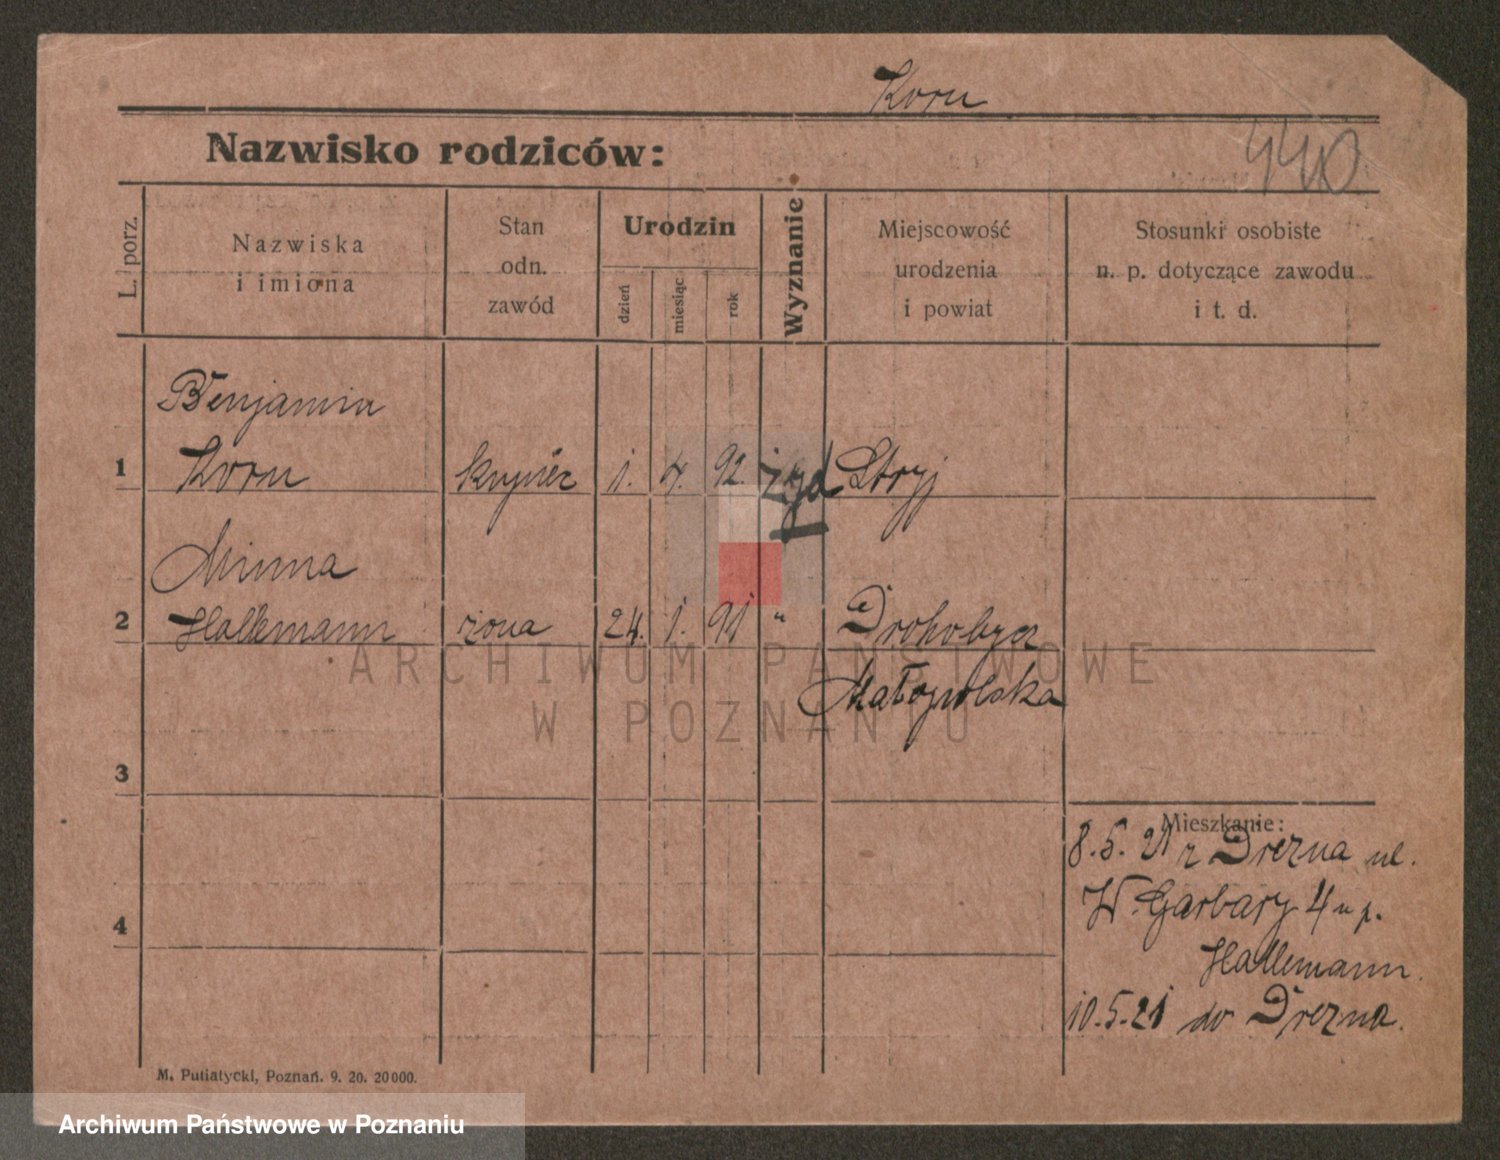 Korn
440
Nazwisko rodziców:
L. porz.
Nazwiska
i imiona
Stan
odn.
zawód
Urodzin
dzień
miesiąc
rok
Wyznanie
Miejscowość
urodzenia
i powiat
Stosunki osobiste
n. p. dotyczące zawodu
i t. d.
Benjamin
1 Korn kupiec 1. 4. 92. żyd Stryj
Minna
2 Hallemann żona 24. 1. 91 " Drohobycz
Małopolska
3
4
Mieszkanie:
8.5.21 z Drezna ul.
W. Garbary 4 u p.
Hallemann.
10.5.21 do Drezna.
M. Putiatycki, Poznań. 9. 20. 20000.
ARCHIWUM PAŃSTWOWE
W POZNANIU
Archiwum Państwowe w Poznaniu